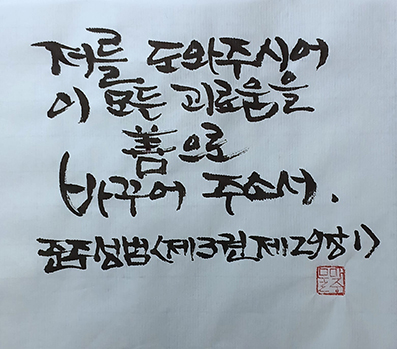 저를 도와주시어
이 모든 괴로움을
善으로
바꾸어 주소서.
준주성범<제3권 제29장1>